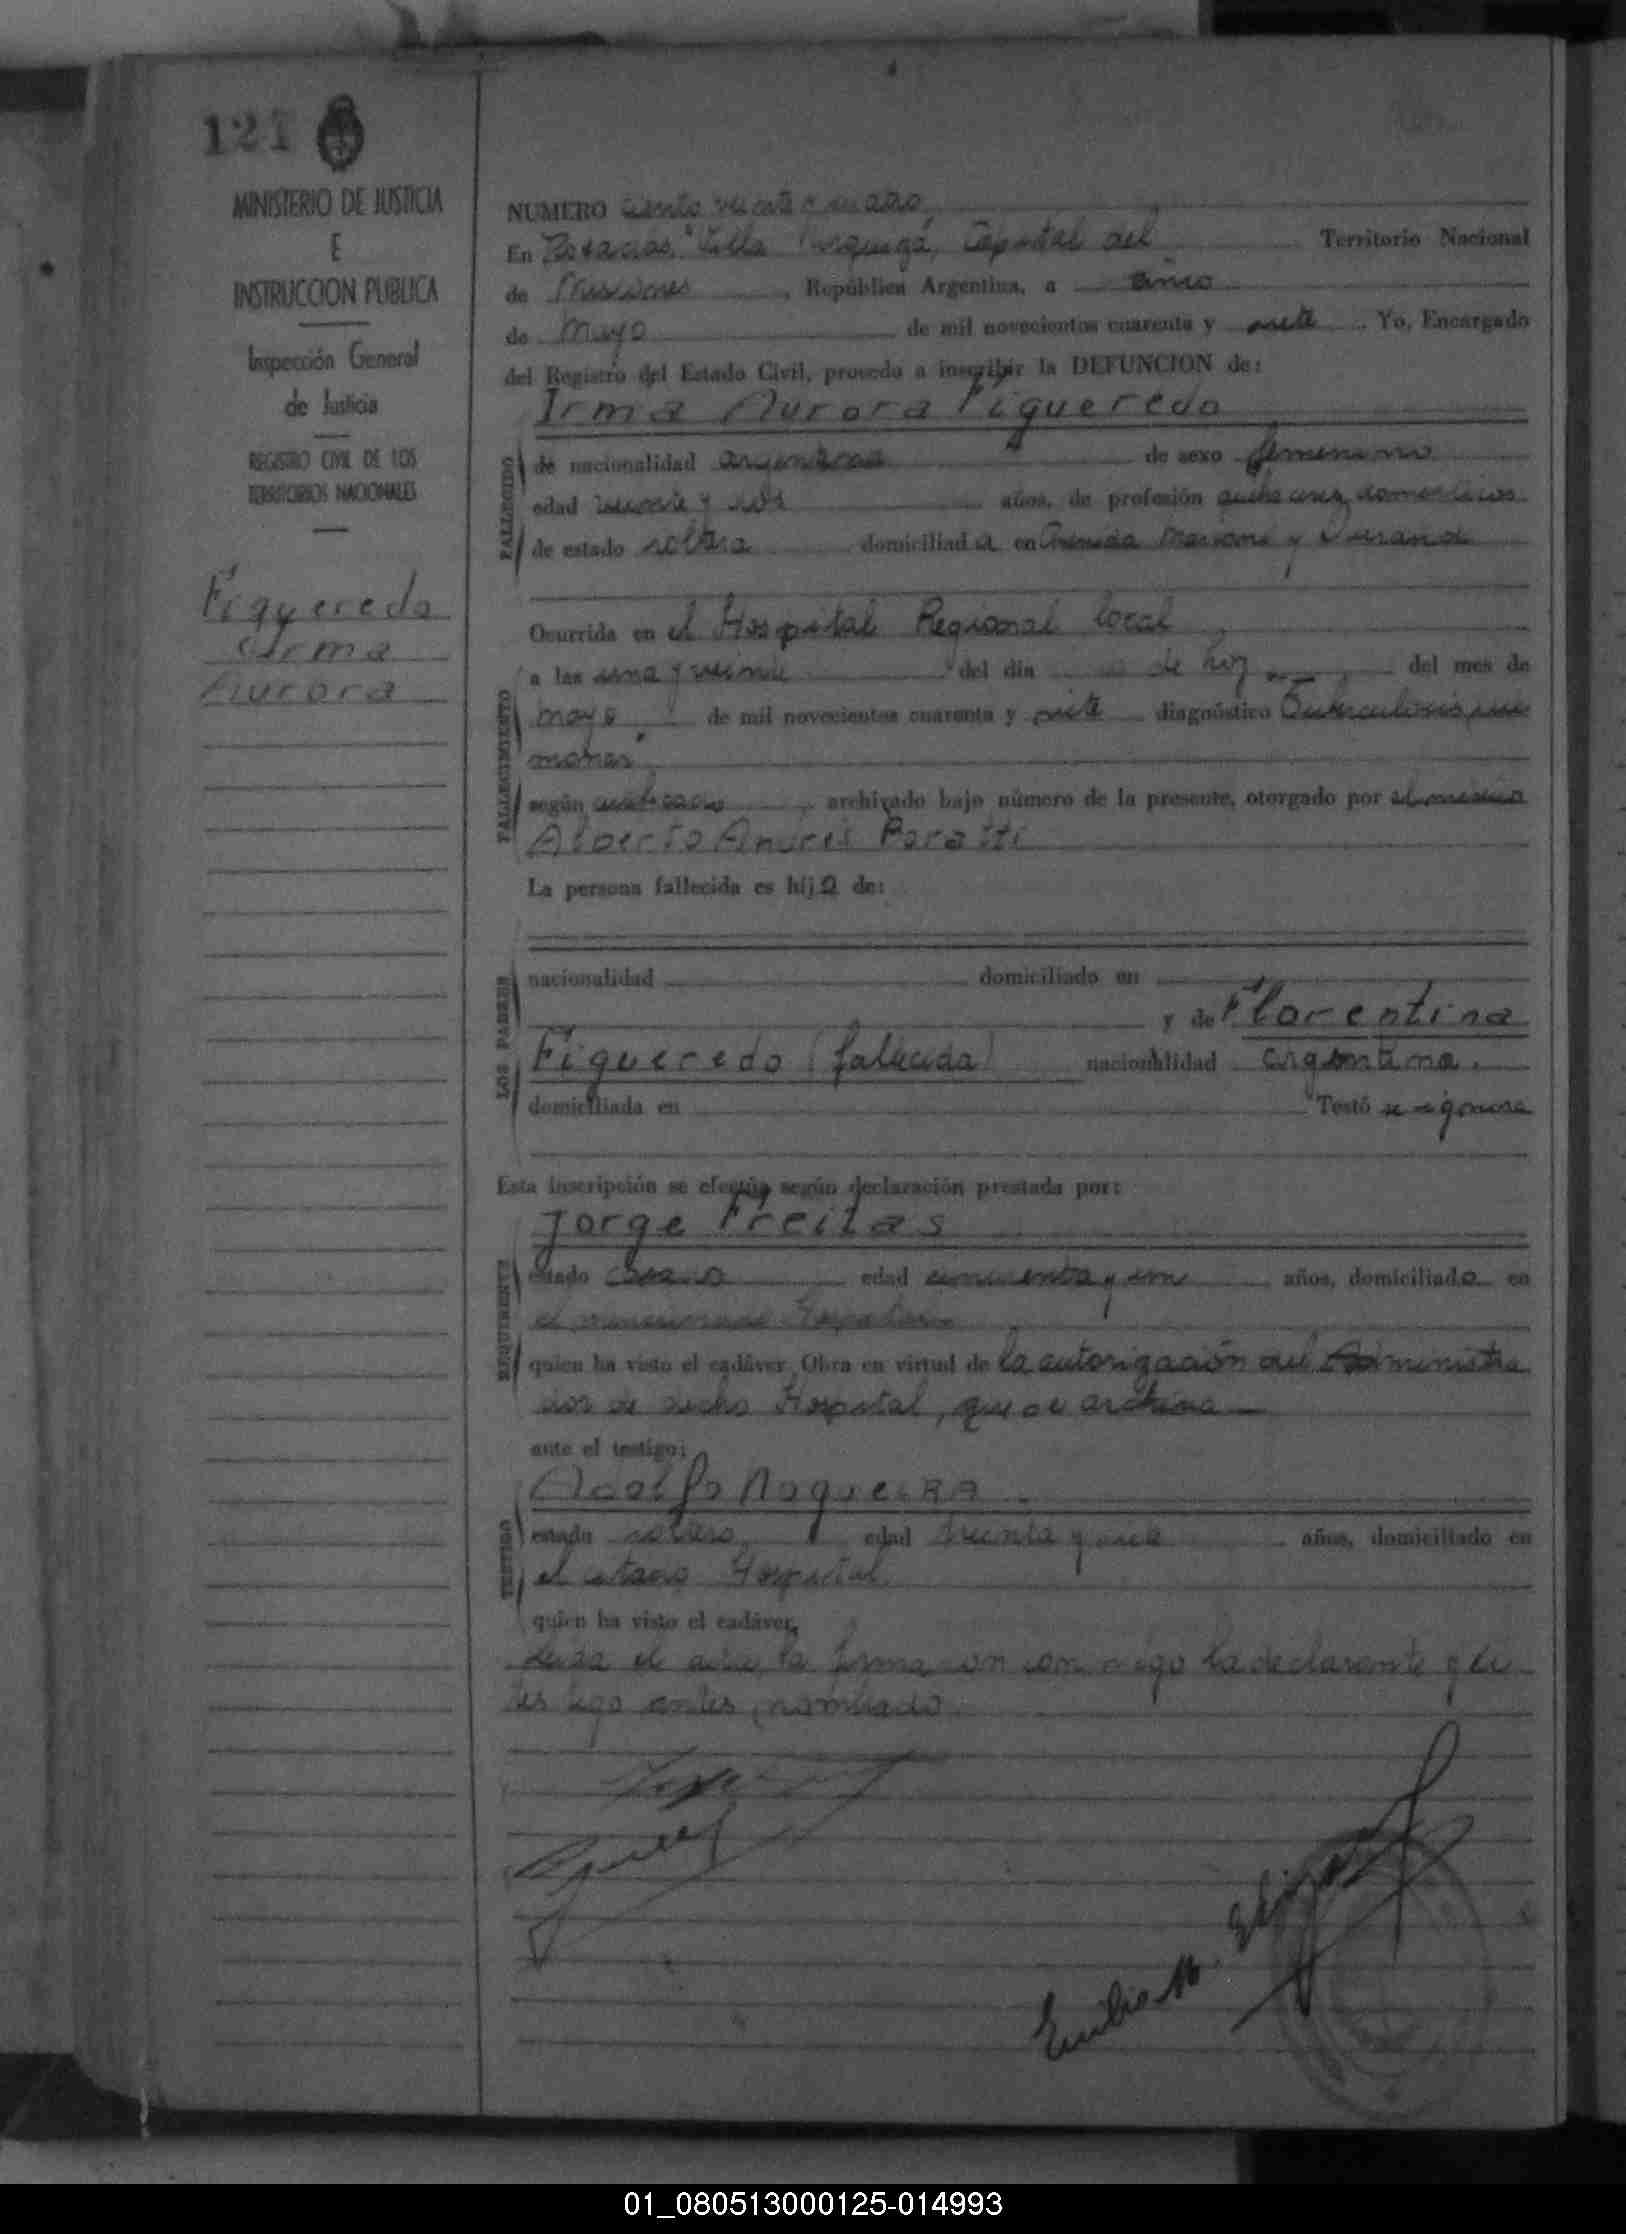 121
MINISTERIO DE JUSTICIA
E
INSTRUCCION PUBLICA
Inspección General
de Justicia
REGISTRO CIVIL DE LOS
TERRITORIOS NACIONALES
Figueredo
Irma
Aurora
NUMERO ciento veinte cuatro
En Posadas, Villa Capital del Territorio Nacional
de Misiones, República Argentina, a cinco
de Mayo de mil novecientos cuarenta y siete. Yo, Encargado
del Registro del Estado Civil, procedo a inscribir la DEFUNCION de:
Irma Aurora Figueredo
FALLECIDO
de nacionalidad argentina de sexo femenino
edad y años, de profesión domesticos
de estado soltera domiciliada en Avenida y
FALLECIMIENTO
Ocurrida en el Hospital Regional local
a las una y veinte del día de hoy del mes de
mayo de mil novecientos cuarenta y siete diagnóstico Tuberculosis pul
monar
según certificado, archivado bajo número de la presente, otorgado por el médico
Alberto Andrés Poratti
La persona fallecida es hija de:
LOS PADRES
nacionalidad domiciliado en
y de Florentina
Figueredo (fallecida) nacionalidad argentina.
domiciliada en Testó se ignora
Esta inscripción se efectúa según declaración prestada por:
Jorge Freitas
REQUIRENTE
estado casado edad cincuenta y un años, domiciliado en
el mencionado Hospital
quien ha visto el cadáver. Obra en virtud de la autorización del Administra
dor de dicho Hospital, que se archiva
ante el testigo:
Adolfo NogueiRA
TESTIGO
estado soltero edad treinta y siete años, domiciliado en
el citado Hospital.
quien ha visto el cadáver.
Leida el acta, la firma on con migo la declarante y el
tes tigo antes nombrado.
Emilio M.
01_080513000125-014993